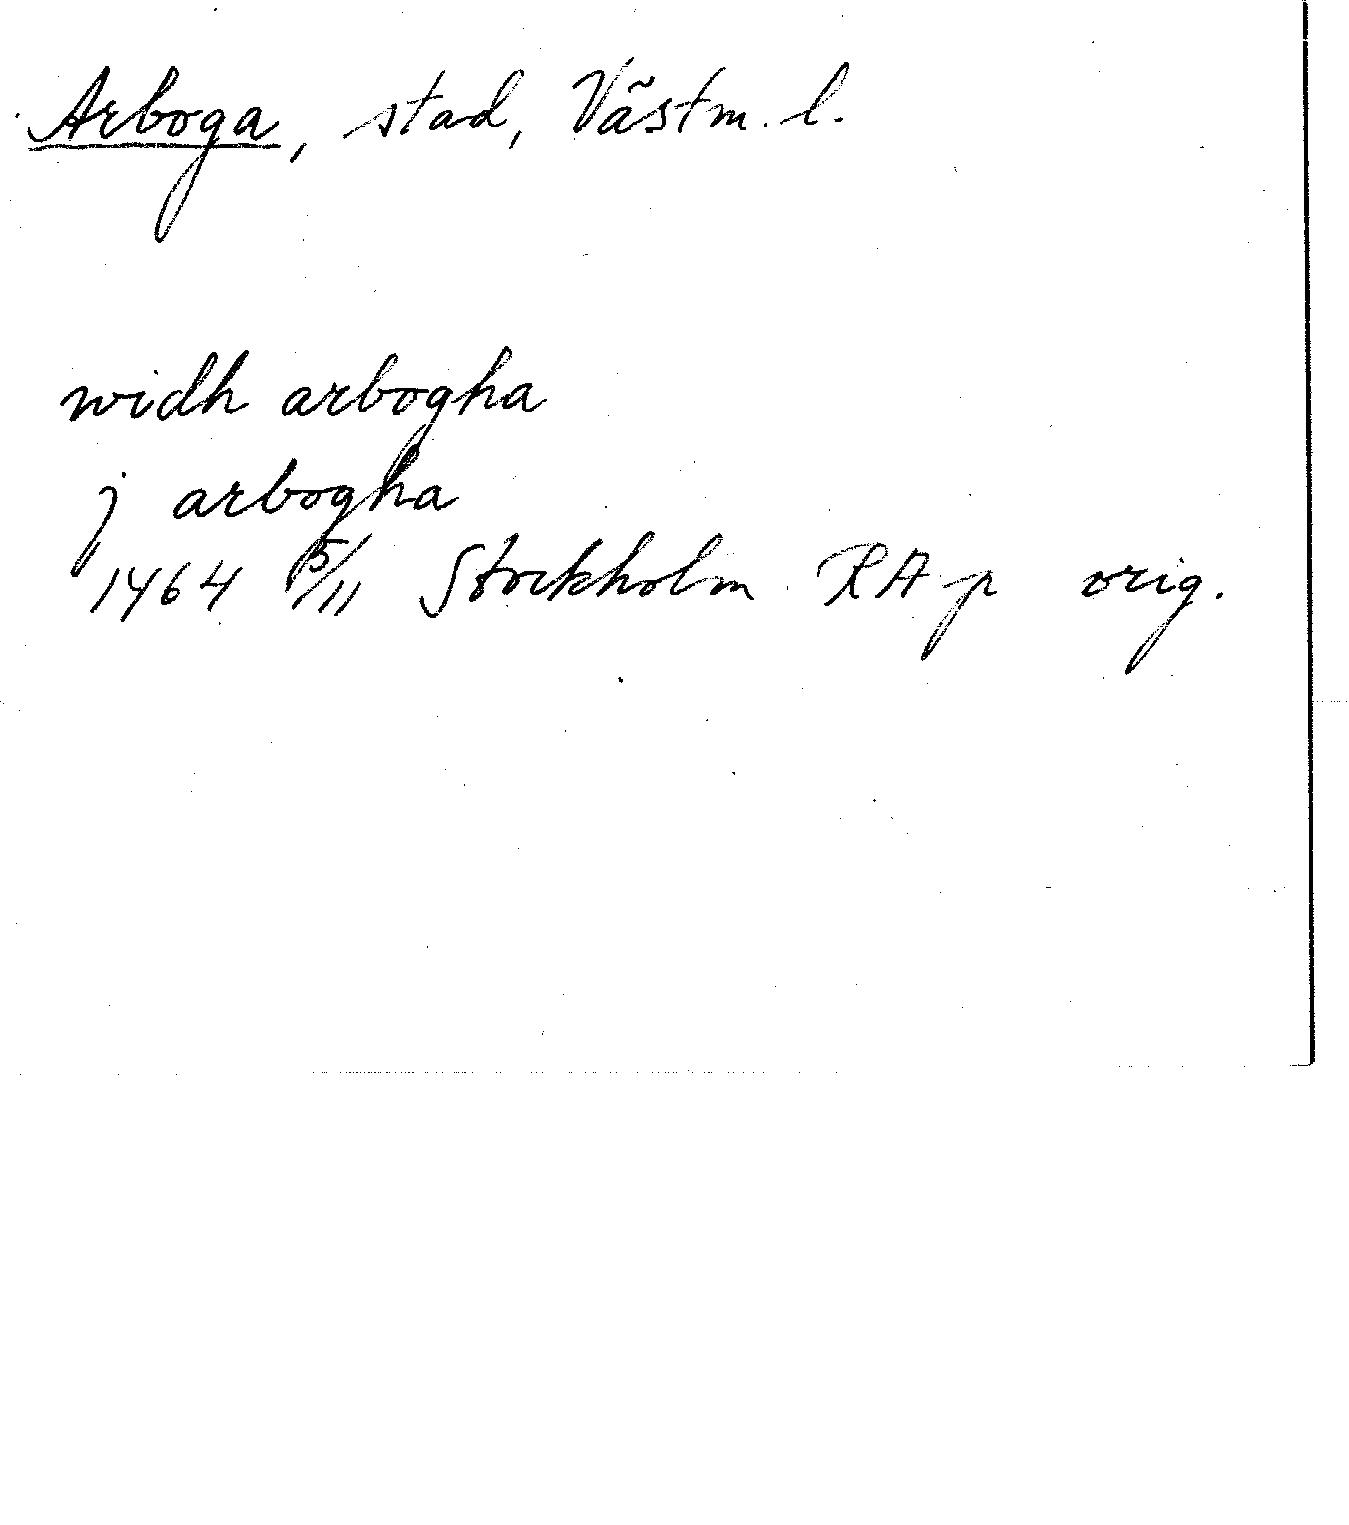 Arboga, stad, Västm. l.
widh arbogha
j arbogha
1464 5/11 Stockholm RAp orig.